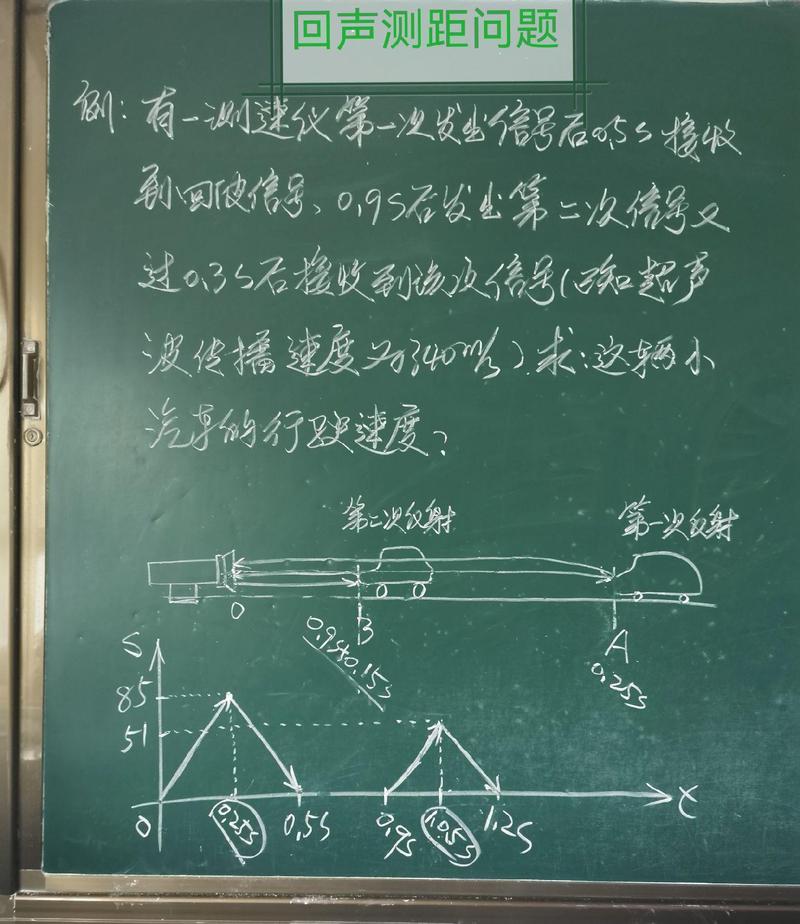 回声测距问题
例:有一测速仪第一次发出信号后0.5s接收
到回波信号、0.9S后发出第二次信号又
过0.3S后接收到该次信号(已知超声
波传播速度为340m/s).求:这辆小
汽车的行驶速度?
第二次反射
第一次反射
O
B
A
0.9s+0.15s
0.25s
S
85
51
O
0.25s
0.5s
0.9s
1.05s
1.2S
t